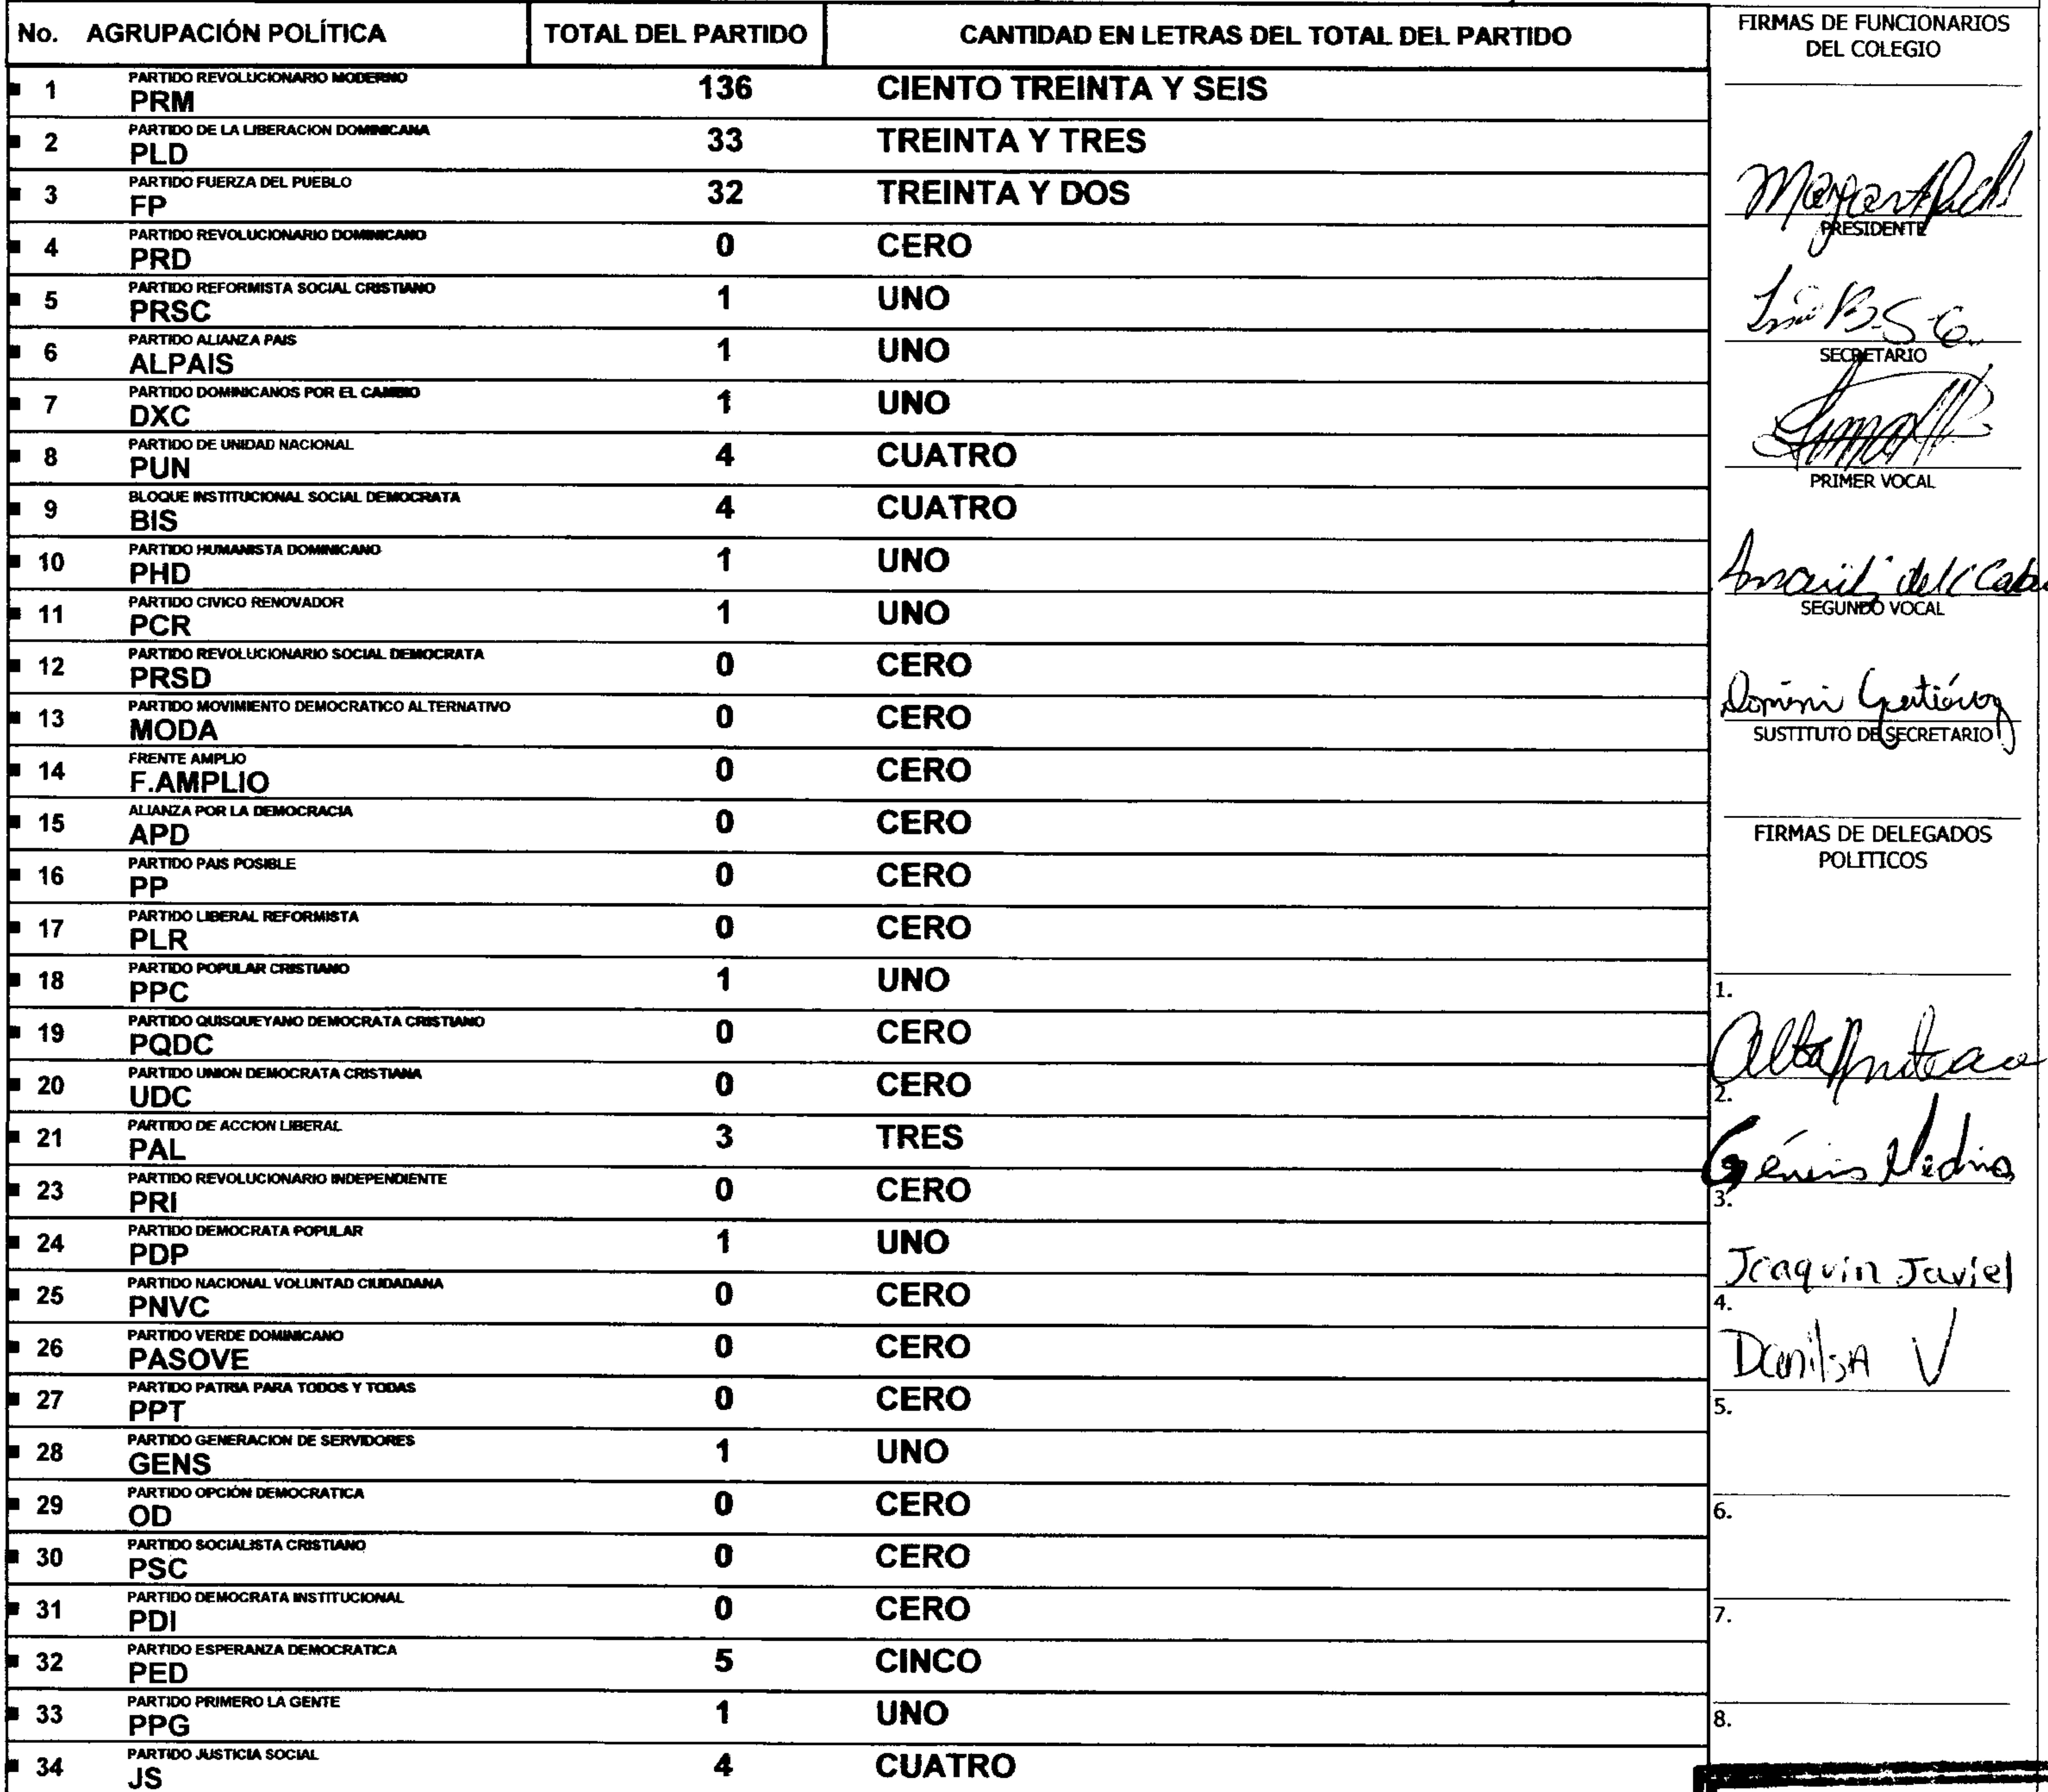 No. AGRUPACIÓN POLÍTICA TOTAL DEL PARTIDO CANTIDAD EN LETRAS DEL TOTAL DEL PARTIDO
PARTIDO REVOLUCIONARIO MODERNO
1 PRM 136 CIENTO TREINTA Y SEIS
PARTIDO DE LA LIBERACION DOMINICANA
2 PLD 33 TREINTA Y TRES
PARTIDO FUERZA DEL PUEBLO
3 FP 32 TREINTA Y DOS
PARTIDO REVOLUCIONARIO DOMINICANO
4 PRD 0 CERO
PARTIDO REFORMISTA SOCIAL CRISTIANO
5 PRSC 1 UNO
PARTIDO ALIANZA PAIS
6 ALPAIS 1 UNO
PARTIDO DOMINICANOS POR EL CAMBIO
7 DXC 1 UNO
PARTIDO DE UNIDAD NACIONAL
8 PUN 4 CUATRO
BLOQUE INSTITUCIONAL SOCIAL DEMOCRATA
9 BIS 4 CUATRO
PARTIDO HUMANISTA DOMINICANO
10 PHD 1 UNO
PARTIDO CIVICO RENOVADOR
11 PCR 1 UNO
PARTIDO REVOLUCIONARIO SOCIAL DEMOCRATA
12 PRSD 0 CERO
PARTIDO MOVIMIENTO DEMOCRATICO ALTERNATIVO
13 MODA 0 CERO
FRENTE AMPLIO
14 F.AMPLIO 0 CERO
ALIANZA POR LA DEMOCRACIA
15 APD 0 CERO
PARTIDO PAIS POSIBLE
16 PP 0 CERO
PARTIDO LIBERAL REFORMISTA
17 PLR 0 CERO
PARTIDO POPULAR CRISTIANO
18 PPC 1 UNO
PARTIDO QUISQUEYANO DEMOCRATA CRISTIANO
19 PQDC 0 CERO
PARTIDO UNION DEMOCRATA CRISTIANA
20 UDC 0 CERO
PARTIDO DE ACCION LIBERAL
21 PAL 3 TRES
PARTIDO REVOLUCIONARIO INDEPENDIENTE
23 PRI 0 CERO
PARTIDO DEMOCRATA POPULAR
24 PDP 1 UNO
PARTIDO NACIONAL VOLUNTAD CIUDADANA
25 PNVC 0 CERO
PARTIDO VERDE DOMINICANO
26 PASOVE 0 CERO
PARTIDO PATRIA PARA TODOS Y TODAS
27 PPT 0 CERO
PARTIDO GENERACION DE SERVIDORES
28 GENS 1 UNO
PARTIDO OPCIÓN DEMOCRATICA
29 OD 0 CERO
PARTIDO SOCIALISTA CRISTIANO
30 PSC 0 CERO
PARTIDO DEMOCRATA INSTITUCIONAL
31 PDI 0 CERO
PARTIDO ESPERANZA DEMOCRATICA
32 PED 5 CINCO
PARTIDO PRIMERO LA GENTE
33 PPG 1 UNO
PARTIDO JUSTICIA SOCIAL
34 JS 4 CUATRO
FIRMAS DE FUNCIONARIOS
DEL COLEGIO
PRESIDENTE
SECRETARIO
PRIMER VOCAL
SEGUNDO VOCAL
Gutiérrez
SUSTITUTO DE SECRETARIO
FIRMAS DE DELEGADOS
POLITICOS
1.
2.
Génesis Medina
3.
Joaquin Javiel
4.
Danilsa V
5.
6.
7.
8.